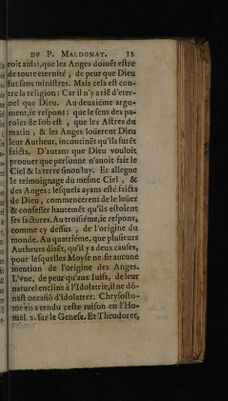 DV P. MALDONAT. 12
roit aussi, que les Anges doiuēt estre
de toute eternité, de peur que Dieu
fut sans ministres. Mais cela est con-
tre la religion: Car il n'y a riē d'eter-
nel que Dieu. Au deuxiéme argu-
ment, ie respons: que le sens des pa-
roles de Iob est, que les Astres du
matin, & les Anges loüerent Dieu
leur Autheur, incontinēt qu'ils furēt
faicts. D'autant que Dieu vouloit
prouuer que personne n'auoit fait le
Ciel & la terre sinon luy. Et allegue
le tesmoignage du mesme Ciel, &
des Anges: lesquels ayans esté faicts
de Dieu, commencerent de le loüer
& confesser hautemēt qu'ils estoient
ses factures. Au troisiéme, ie respons,
comme cy dessus, de l'origine du
monde. Au quatriéme, que plusieurs
Autheurs disēt, qu'il y a deux causes,
pour lesquelles Moyse ne fit aucune
mention de l'origine des Anges.
L'vne, de peur qu'aux Iuifs, de leur
naturel enclins à l'Idolatrie, il ne dō-
nast occasiō d'idolatrer. Chrysosto-
me en a rendu ceste raison en l'Ho-
mel. 2. sur le Genese. Et Theodoret,